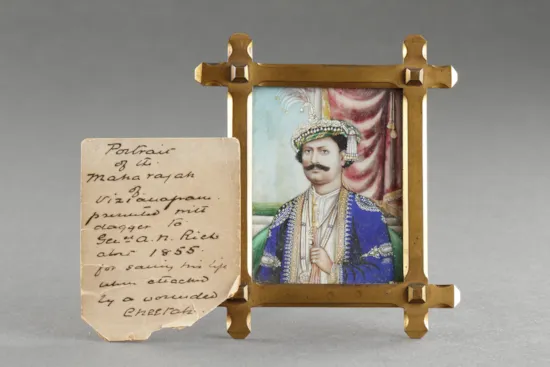 Portrait
of the
Maharajah
of
Vizianagram
presented with
dagger to
Genl A. N. Rich
abt 1855
for saving his life
when attacked
by a wounded
Cheetah.